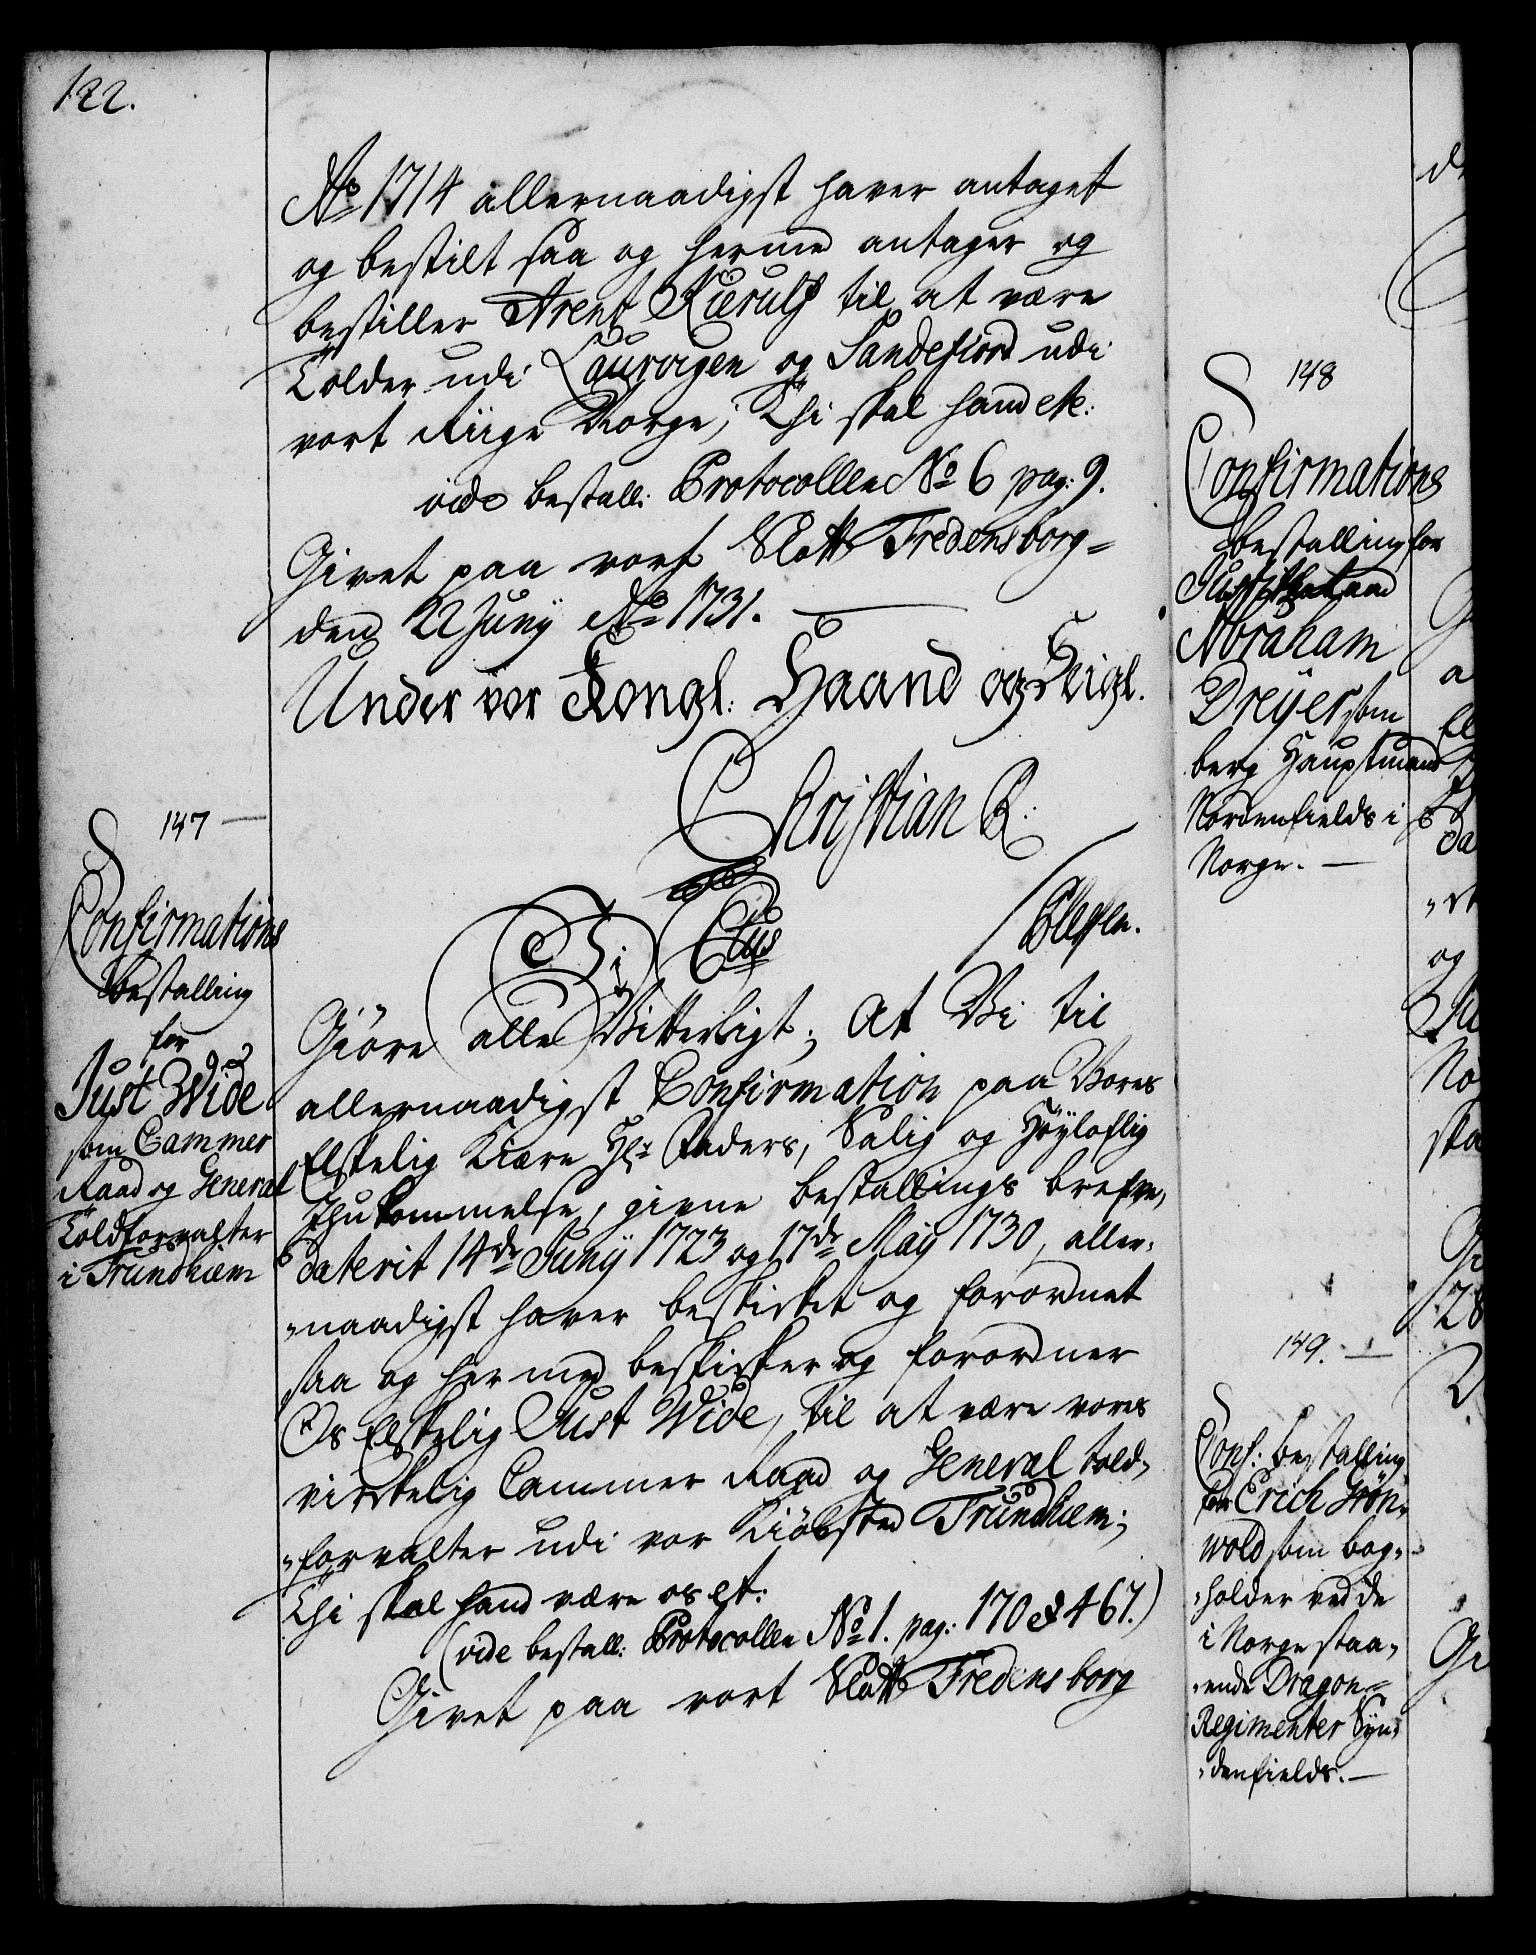 122.
Ao 1714 allernaadigst haver antaget
og bestilt saa og herme antager og
bestiller Arent Kierulf til at være
Tolder udi Laurvigen og Sandefiord udi
vort Riige Norge; Thi skal hand etc:
vide bestall: Protocollen No 6 pag: 9.
Givet paa vort Slott Fredensborg
den 22 Juny Ao 1731.
Under vor Kongl: Haand og Seigl.
Christian R.
147
Confirmations
bestalling
for
Just Wide
som Cammer
Raad og General
Toldforvalter
i Trundhiem
Vi C6tus
Giøre alle Vitterligt; At Vi til
allernaadigst Confirmation paa Vores
Elskelig Kiære Hr Faders, Salig og Høyloflig
Ihukommelse, givne bestallings brefve,
daterit 14de Juny 1723 og 17de May 1730, aller-
-naadigst haver beskicket og forordnet
saa og hermed beskicker og forordner
Os Elskelig Just Wide, til at være vores
virkelig Cammer Raad og General told-
-forvalter udi vor Kiøbsted Trundhiem;
Thi skal hand være os et:
(vide bestall: Protocollen No 1. pag: 170 & 467.)
Givet paa vort Slott Fredensborg
148
Confirmations
bestalling for
Justitzraad
Abraham
Dreyer som
berg Hauptmand
Nordenfields i
Norge.
149.
Conf: bestalling
for Erich Grøn-
wold som bog-
-holder ved de
i Norge staa-
-ende Dragon-
Regimenter Syn-
-denfields.